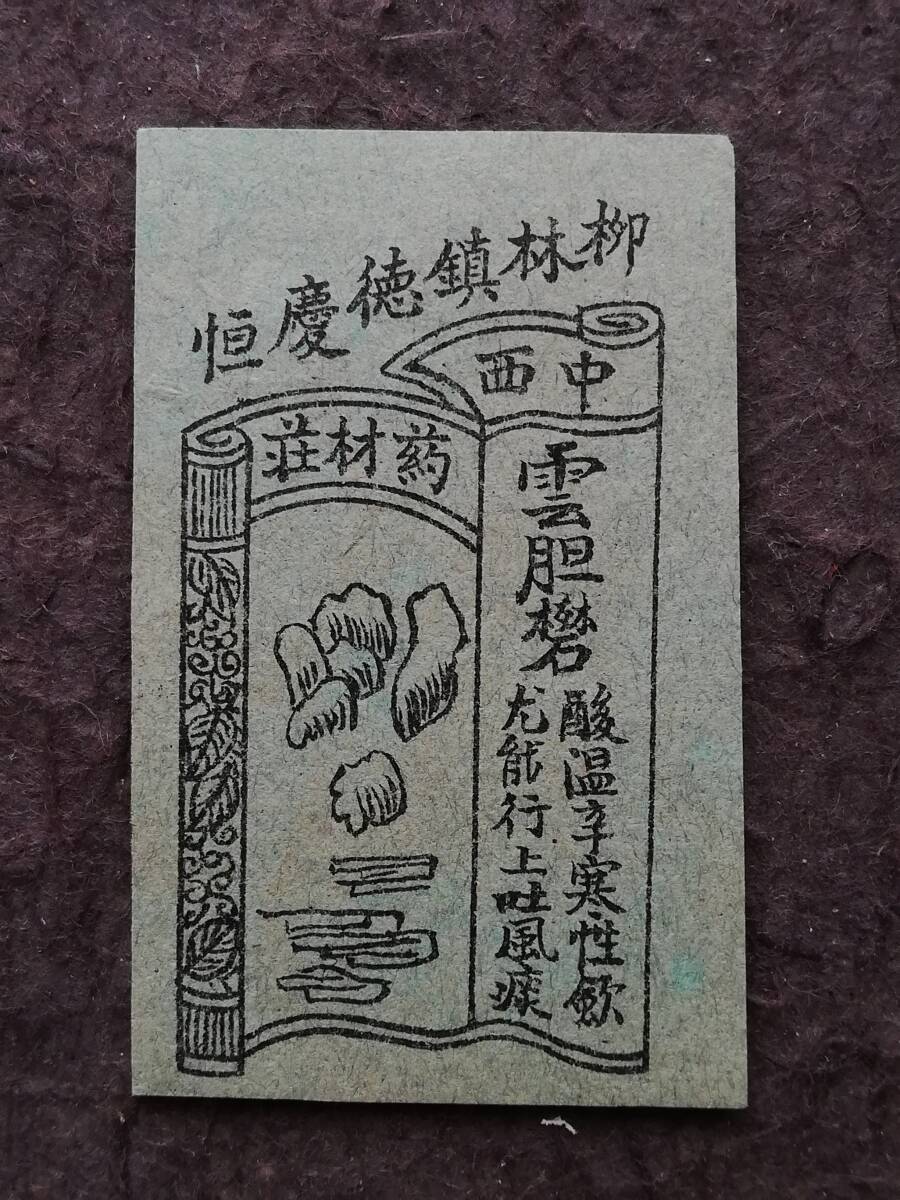 柳林鎮徳慶恒
中西
葯材莊
雲胆礬
酸温辛寒性歛
尤能行上吐風痰